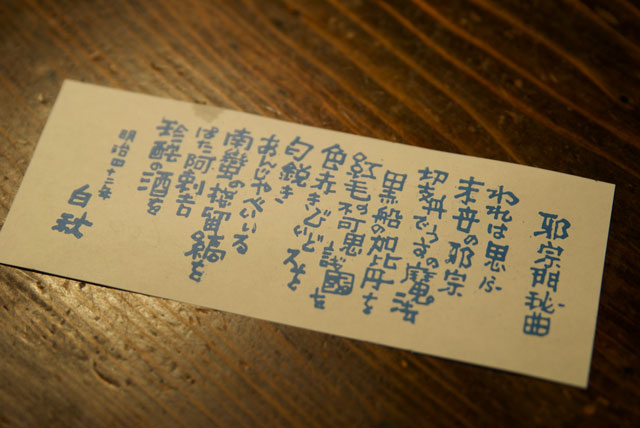 邪宗門秘曲
われは思ふ
末世の邪宗
切支丹でうすの魔法
黒船の加比丹を
紅毛の不可思議國を
色赤きびいどろを
匂鋭き
あんじやべいいる
南蠻の桟留縞を
はた阿剌吉
珍酡の酒を
明治四十二年
白秋